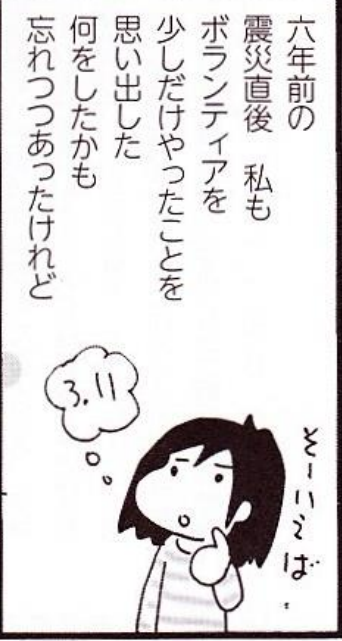 六年前の
震災直後　私も
ボランティアを
少しだけやったことを
思い出した
何をしたかも
忘れつつあったけれど
そーいえば…
3.11